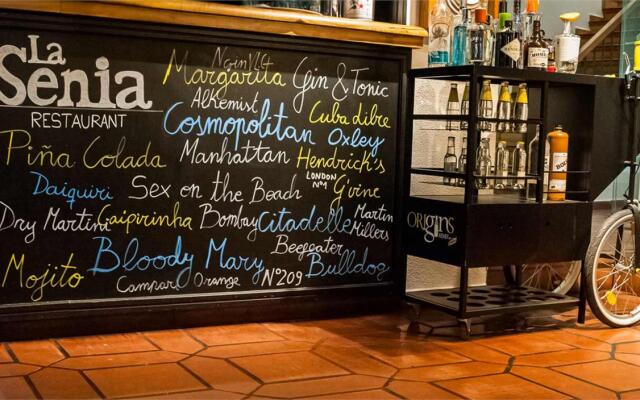 La
Senia
RESTAURANT
NginVLC
Margarita
Gin & Tonic
Alkemist
Cuba dibre
Cosmopolitan
Oxley
Piña Colada
Manhattan
Hendrick's
LONDON
Nº1
Gvine
Daiquiri
Sex on the Beach
Dry Martini
Caipirinha
Bombay
Citadelle
Martin
Millers
Beefeater
Mojito
Bloody Mary
Bulldog
Campari Orange
Nº209
ORIGINS